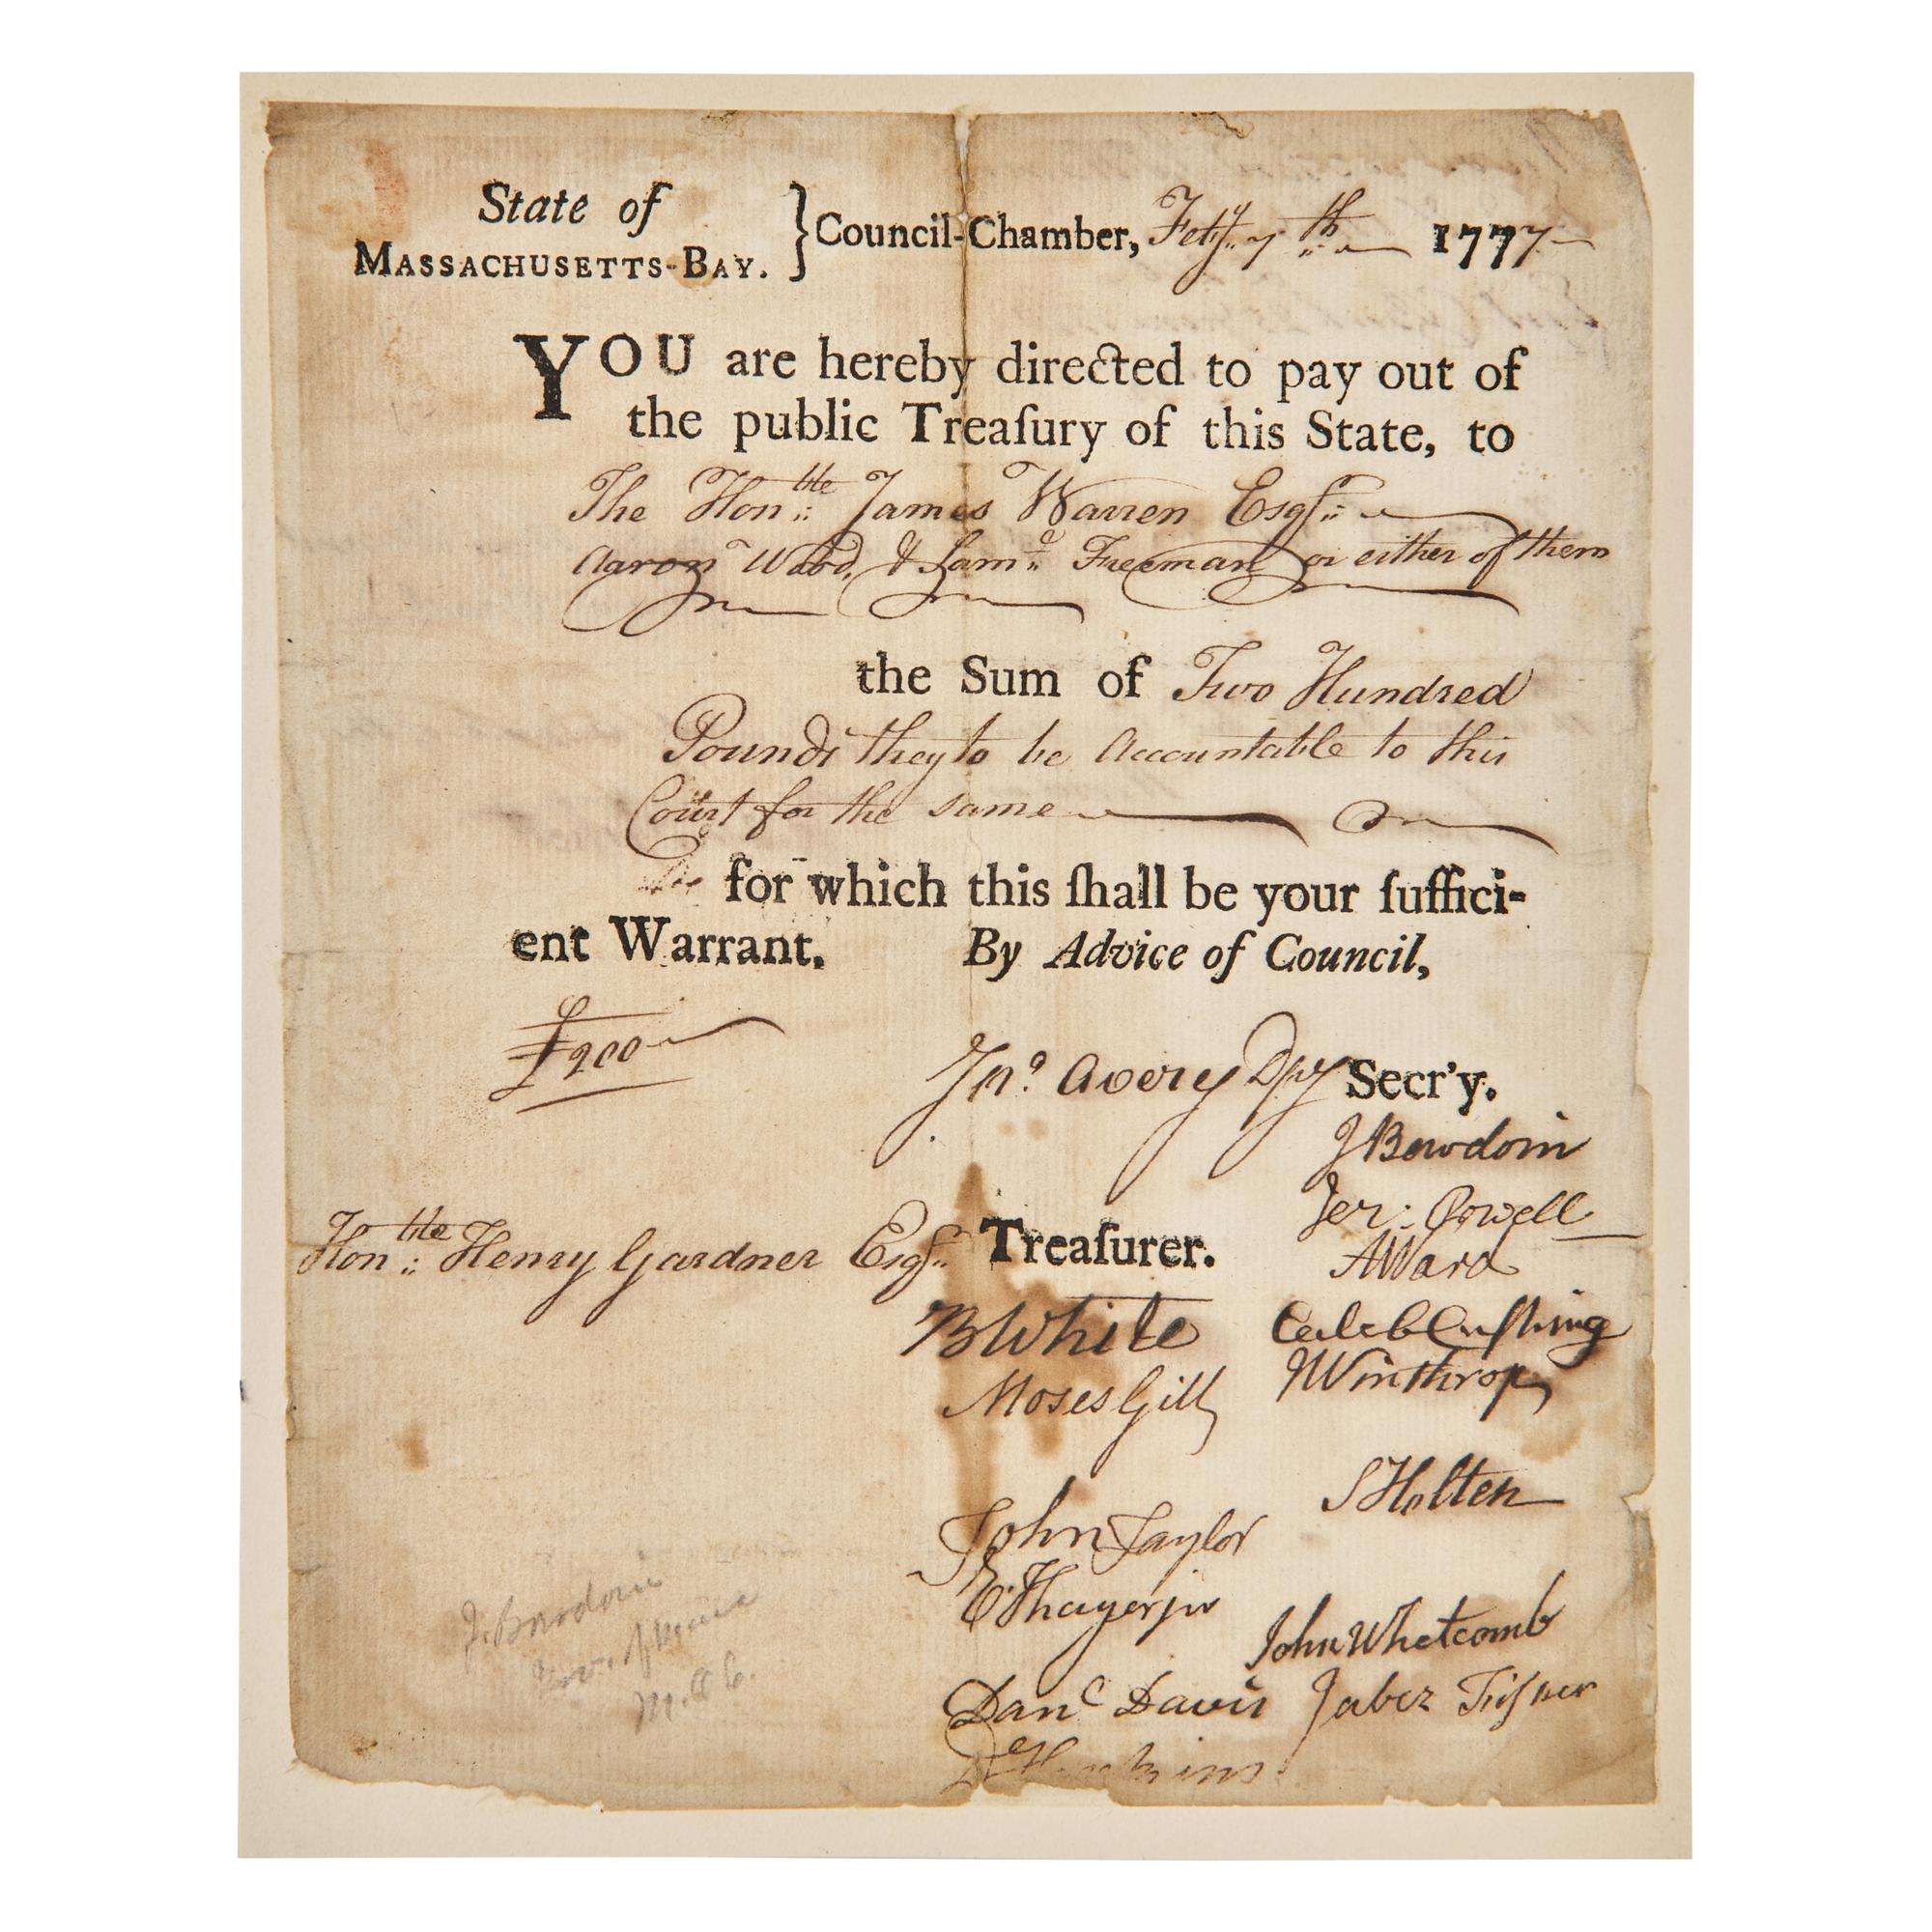 State of
MASSACHUSETTS-BAY. } Council-Chamber, Feby. 7th 1777
YOU are hereby directed to pay out of
the public Treaſury of this State, to
The Honble James Warren Esqr.
Aaron Wood, & Saml. Freeman or either of them
the Sum of Two Hundred
Pounds they to be Accountable to this
Court for the same
for which this ſhall be your ſuffici-
ent Warrant. By Advice of Council,
£200
Jno. Avery Dpy Secr'y.
J Bowdoin
Jer: Powell
To
Honble Henry Gardner Esqr. Treaſurer.
A Ward
B White Caleb Cushing
Moses Gill J Winthrop
S Holten
John Taylor
E. Thayer jnr
John Whetcomb
Danl Davis Jabez Fisher
D Hopkins
J. Bowdoin